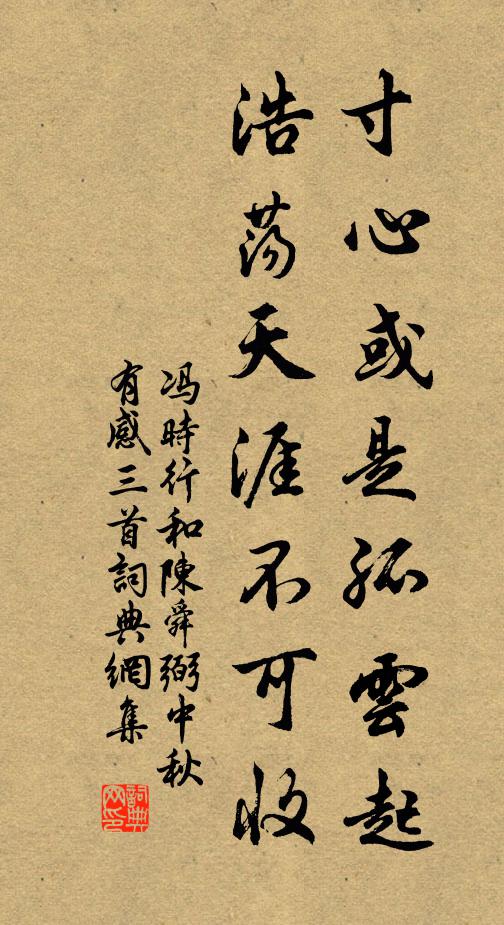 寸心或是孤雲起
浩蕩天涯不可收
馮時行和陳舜弼中秋
有感三首詞典網集
詞典網印